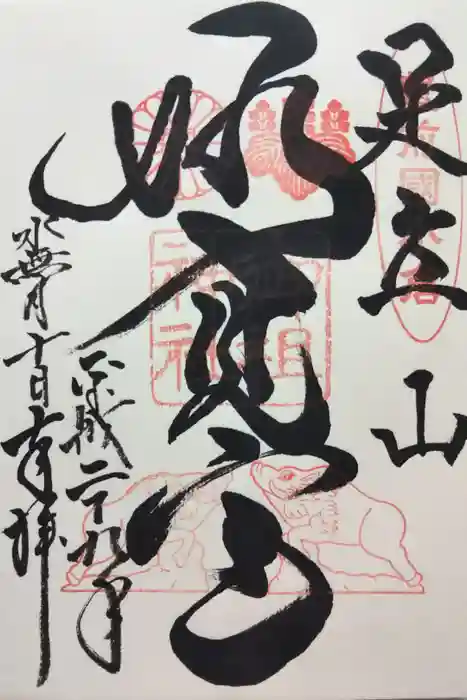 足立山
妙見宮
御祖
神社
平成二十九年
水無月十日奉拝